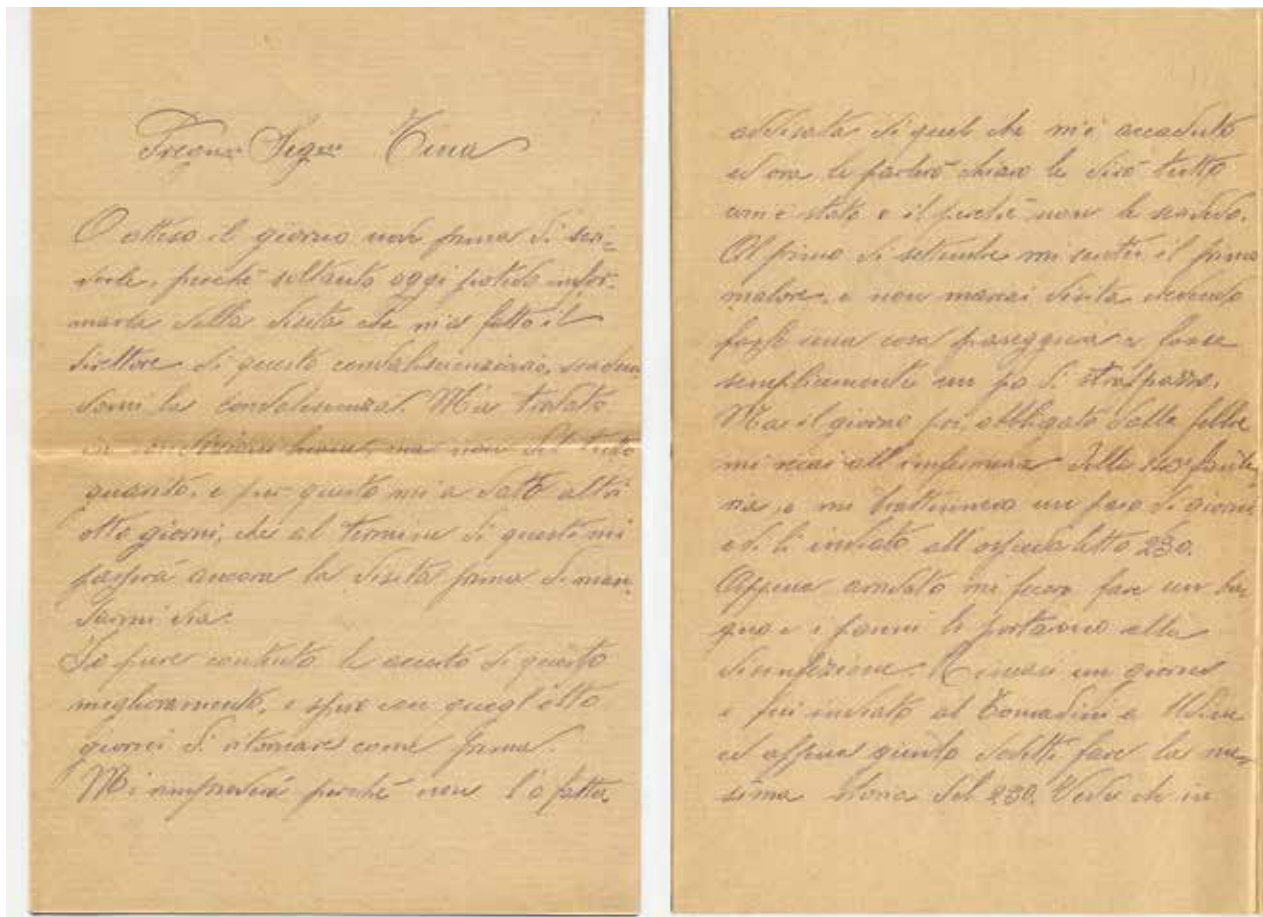 Preg.ma Sig.na Tina
O atteso il giorno nove prima di scri=
verle, perché soltanto oggi potevo infor-
marla della visita che m'a fatto il
direttore di questo convalescenziario, scaden
domi la convalescenza. M'a trovato
in condizioni buone, ma non del tutto
guarito, e per questo mi a dato altri
otto giorni, che al termine di questi mi
passerà ancora la visita prima di man-
darmi via.
Io pure contento le accerto di questo
miglioramento, e spero con quegl'otto
giorni di ritornare come prima.
Mi rimprovera perché non l'ò fatta
avvisata di quel che m'è accaduto
ed ora le parlerò chiaro le dirò tutto
com'è stato e il perché non le scrivevo.
Al primo di settembre mi sentii il primo
malore, e non marcai visita credendo
fosse una cosa passeggera e forse
semplicemente un po di strapazzo.
Ma il giorno poi, obbligato dalla febbre
mi recai all'infermeria della fante
ria, e mi trattennero un paio di giorni
e di lì inviato all'ospedaletto 230.
Appena arrivato mi fecero fare un ba
gno e i panni li portarono alla
disinfezione. Rimasi un giorno
e fui inviato al Tomadini a Udine
ed appena giunto dovetti fare la me=
sima storia del 230. Vede che in